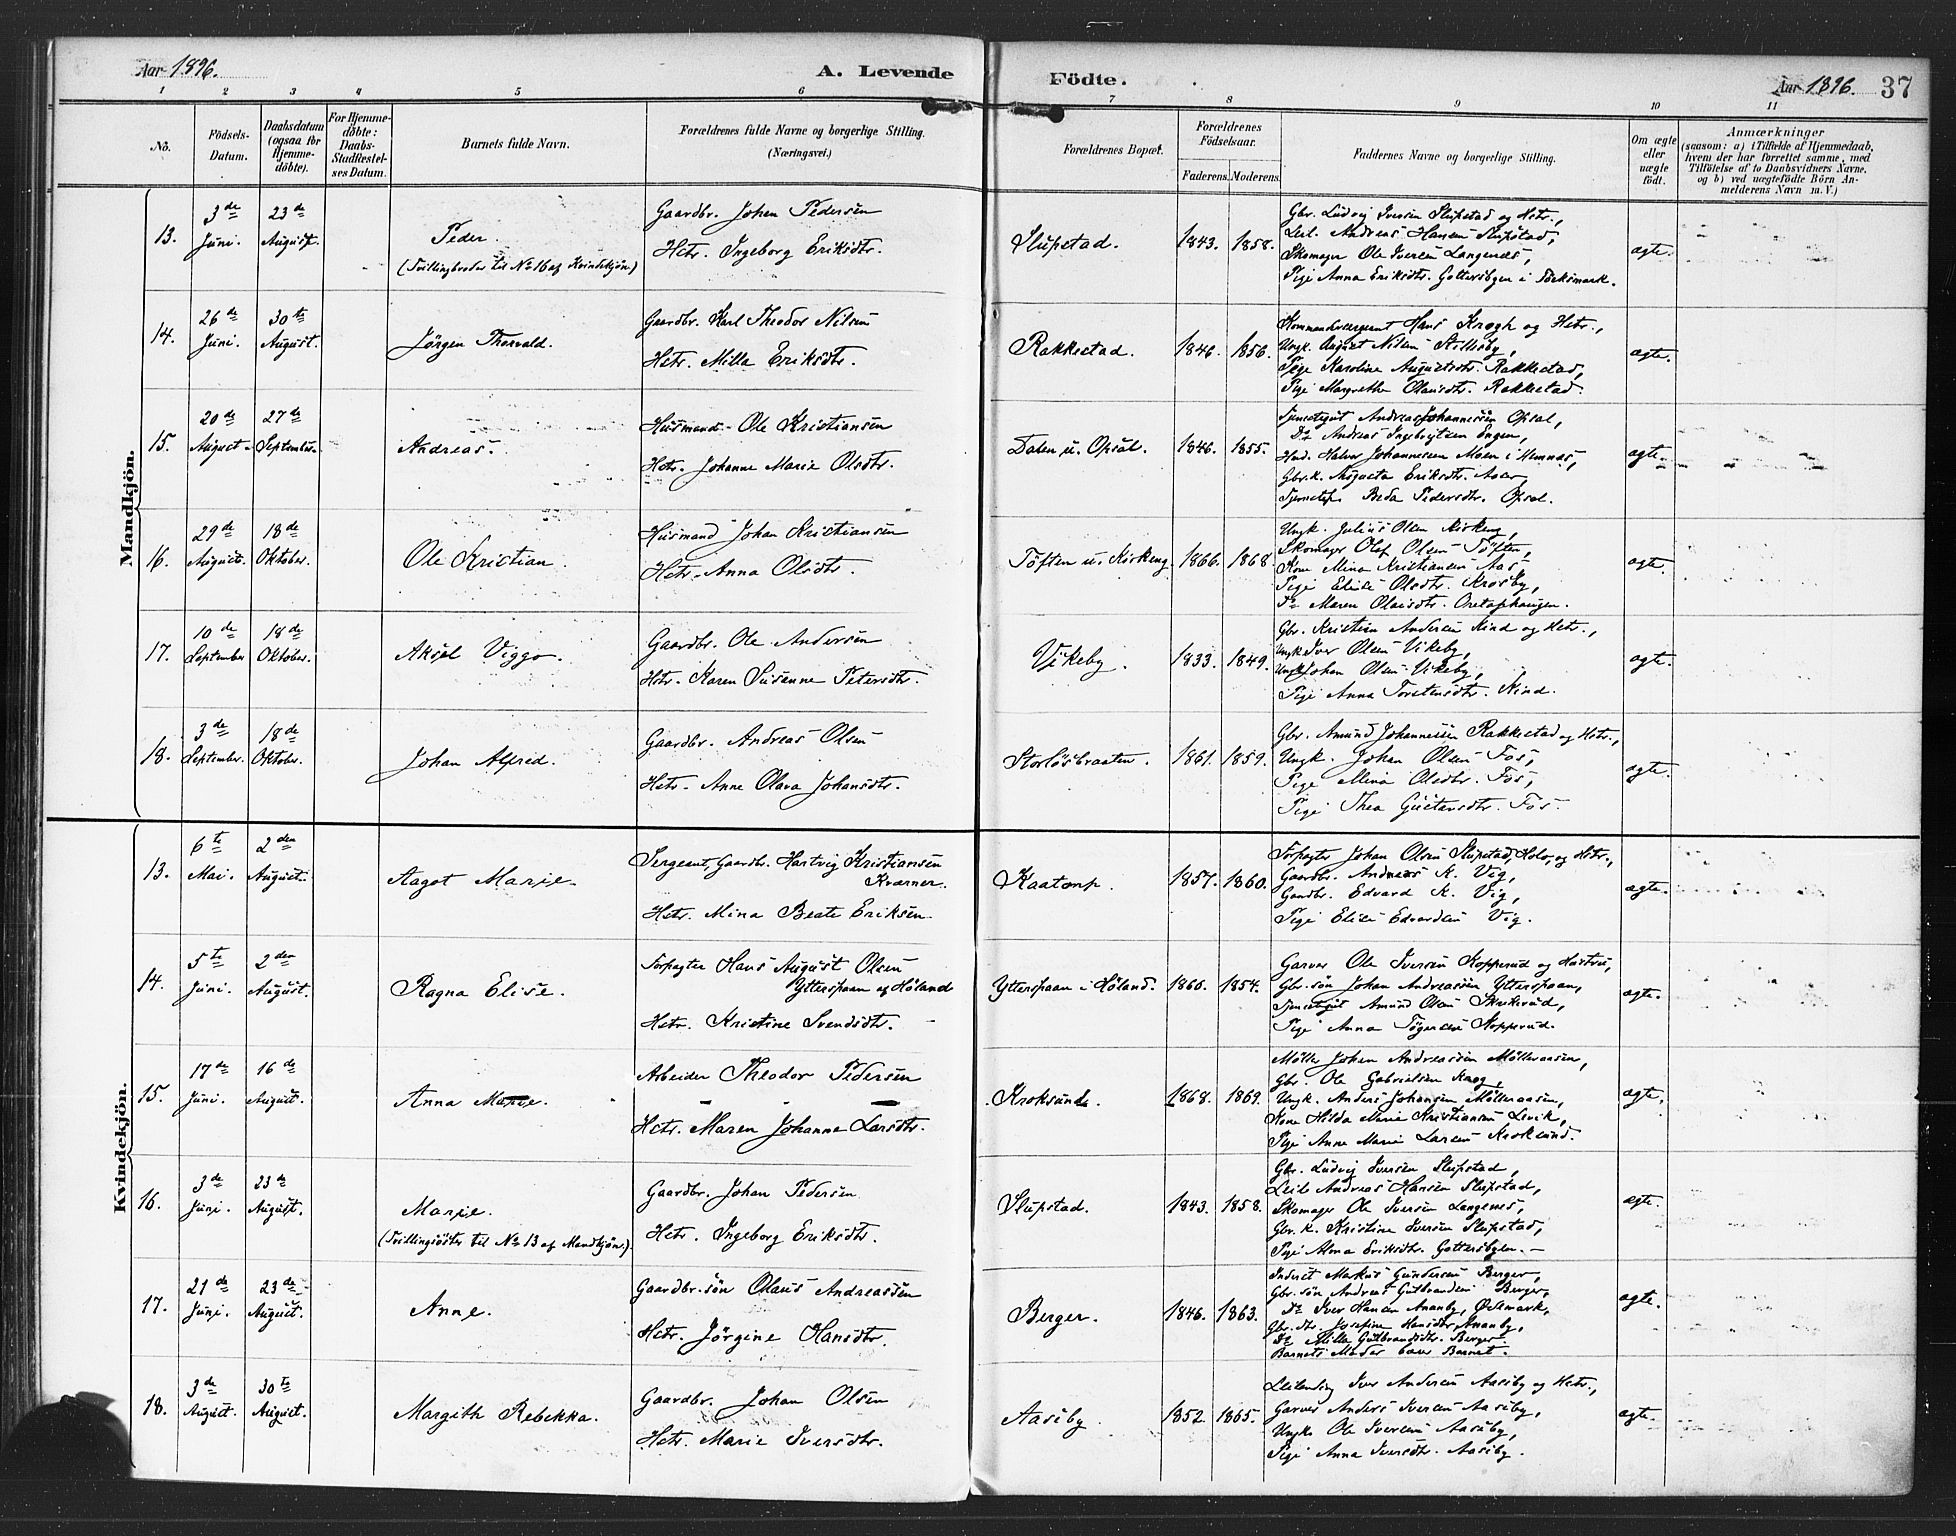 Aar 1896.
A. Levende Födte.
Aar 1896. 37
1 2 3 4 5 6 7 8 9 10 11
No.
Födsels-Datum.
Daabsdatum (ogsaa for Hjemme-döbte).
For Hjemme-döbte: Daabs-Stadfæstel-ses Datum.
Barnets fulde Navn.
Forældrenes fulde Navne og borgerlige Stilling.
(Næringsvei.)
Forældrenes Bopæl.
Forældrenes Födselsaar.
Faderens. Moderens.
Faddernes Navne og borgerlige Stilling.
Om ægte eller uægte født.
Anmærkninger
(saasom: a) i Tilfælde af Hjemmedaab,
hvem der har forrettet samme, med
Tilföielse af to Daabsvidners Navne,
og b) ved uægtefödte Börn An-
melderens Navn m. V.)
Mandkjön.
13. 3de Juni. 23de August.
Peder.
(Tvillingbroder til No 16 af Kvindekjön.)
Gaardbr. Johan Pedersen
Hstr. Ingeborg Eriksdtr.
Slupstad. 1843. 1858.
Gbr. Ludvig Iversen Slupstad og Hstr.,
Leil. Andreas Hansen Slupstad,
Skomager Ole Iversen Langenes,
Pige Anna Eriksdtr. Gottersbyen i
ægte.
14. 26de Juni. 30te August.
Jörgen Thorvald.
Gaardbr. Karl Theodor Nilsen
Hstr. Milla Eriksdtr.
Rakkestad. 1846. 1856.
Kommandersergeant Hans Krogh og Hstr.,
Ungk. August Nilsen
Pige Karoline Augustsdtr. Rakkestad,
Pige Margrethe Olausdtr. Rakkestad.
ægte.
15. 20de August. 27de September.
Andreas.
Husmand Ole Kristiansen
Hstr. Johanne Marie Olsdtr.
Dalen u. Opsal. 1846. 1855.
Tjenestegut Andreas Johannesen Opsal,
Do Andreas Ingebrigtsen Engen,
Hmd. Halvor Johannesen Moen i Hemnes,
Gbr.k. Augusta Eriksdtr. Aaer
Tjenestep. Beda Pedersdtr. Opsal.
ægte.
16. 29de August. 18de Oktober.
Ole Kristian.
Husmand Johan Kristiansen
Hstr. Anna Olsdtr.
Töften u. Kirkeng. 1866. 1868.
Ungk. Julius Olsen Kirkeng,
Skomager Olaf Olsen Töften,
Kone Mina Kristiansen Aas
Pige Elise Olsdtr. Krosby,
Do Maren Olausdtr.
ægte.
17. 10de September 18de Oktober.
Aksel Viggo.
Gaardbr. Ole Andersen
Hstr. Karen Susanne Petersdtr.
Vikeby. 1833. 1849.
Gbr. Kristian Andersen Kind og Hstr.,
Ungk. Iver Olsen Vikeby,
Ungk. Johan Olsen Vikeby,
Pige Anna Torstensdtr. Kind.
ægte.
18. 3de September. 18de Oktober.
Johan Alfred.
Gaardbr. Andreas Olsen
Hstr. Anne Olava Johansdtr.
Storlösbraaten. 1861. 1859.
Gbr. Amund Johannesen Rakkestad og Hstr.,
Ungk. Johan Olsen Fos,
Pige Mina Olsdtr. Fos,
Pige Thea Gustavsdtr. Fos.
ægte.
Kvindekjön.
13. 6te Mai. 2den August.
Aagot Marie.
Sergeant, Gaardbr. Hartvig Kristiansen
Kværner.
Hstr. Mina Beate Eriksen.
Kaatorp. 1857. 1860.
Forpagter Johan Olsen Slupstad, Holo, og Hstr.,
Gaardbr. Andreas K. Vig,
Gaardbr. Edvard K. Vig,
Pige Elise Edvardsen Vig.
ægte.
14. 5te Juni. 2den August.
Ragna Elise.
Forpagter Hans August Olsen
Ytterspaan af Höland
Hstr. Kristine Svendsdtr.
Ytterspaan i Höland. 1860. 1854.
Garver Ole Iversen Kopperud og Hustru,
Gbr. sön Johan Andreassen Ytterspaan,
Tjenestegut Amund Olsen
Pige Anna Kopperud.
ægte.
15. 17de Juni. 16de August.
Anna Marie.
Arbeider Theodor Pedersen
Hstr. Maren Johanne Larsdtr.
Kroksund. 1868. 1869.
Möller Johan Andreassen Mölleraasen,
Gbr. Ole Gabrielsen Krog,
Ungk. Anders Johansen Mölleraasen,
Kone Hilda Marie Kristiansen Levik,
Pige Anne Marie Larsen Kroksund.
ægte.
16. 3de Juni. 23de August.
Marie.
(Tvillingsöster til No 13 af Mandkjön.)
Gaardbr. Johan Pedersen
Hstr. Ingeborg Eriksdtr.
Slupstad. 1843. 1858.
Gbr. Ludvig Iversen Slupstad,
Leil. Andreas Hansen Slupstad,
Skomager Ole Iversen Langenes,
Gbr. k. Kristine Iversen Slupstad,
Pige Anna Eriksdtr. Gottersbyen.
ægte.
17. 21de Juni. 23de August.
Anne.
Gaardbr. sön Olaus Andreassen
Hstr. Jörgine Hansdtr.
Berger. 1846. 1863.
Inderst Markus Gundersen Berger,
Gbr. sön Andreas Gulbrandsen Berger,
Do Iver Hansen Ananby, Ödemark,
Gbr. dtr. Josefine Hansdtr. Ananby,
Do Milla Gulbrandsdtr. Berger.
Barnets Moder bar Barnet.
ægte.
18. 3de August. 30te August.
Margith Rebekka.
Gaardbr. Johan Olsen
Hstr. Marie Iversdtr.
Aaseby. 1852. 1865.
Leilending Iver Andersen Aaseby og Hstr.,
Garver Anders Iversen Aaseby,
Ungk. Ole Iversen Aaseby,
Pige Anna Iversdtr. Aaseby.
ægte.